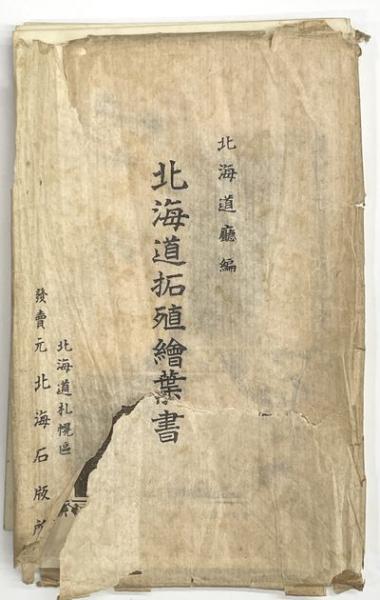 北海道廳編
北海道拓殖繪葉書
北海道札幌區
發賣元 北海石版所